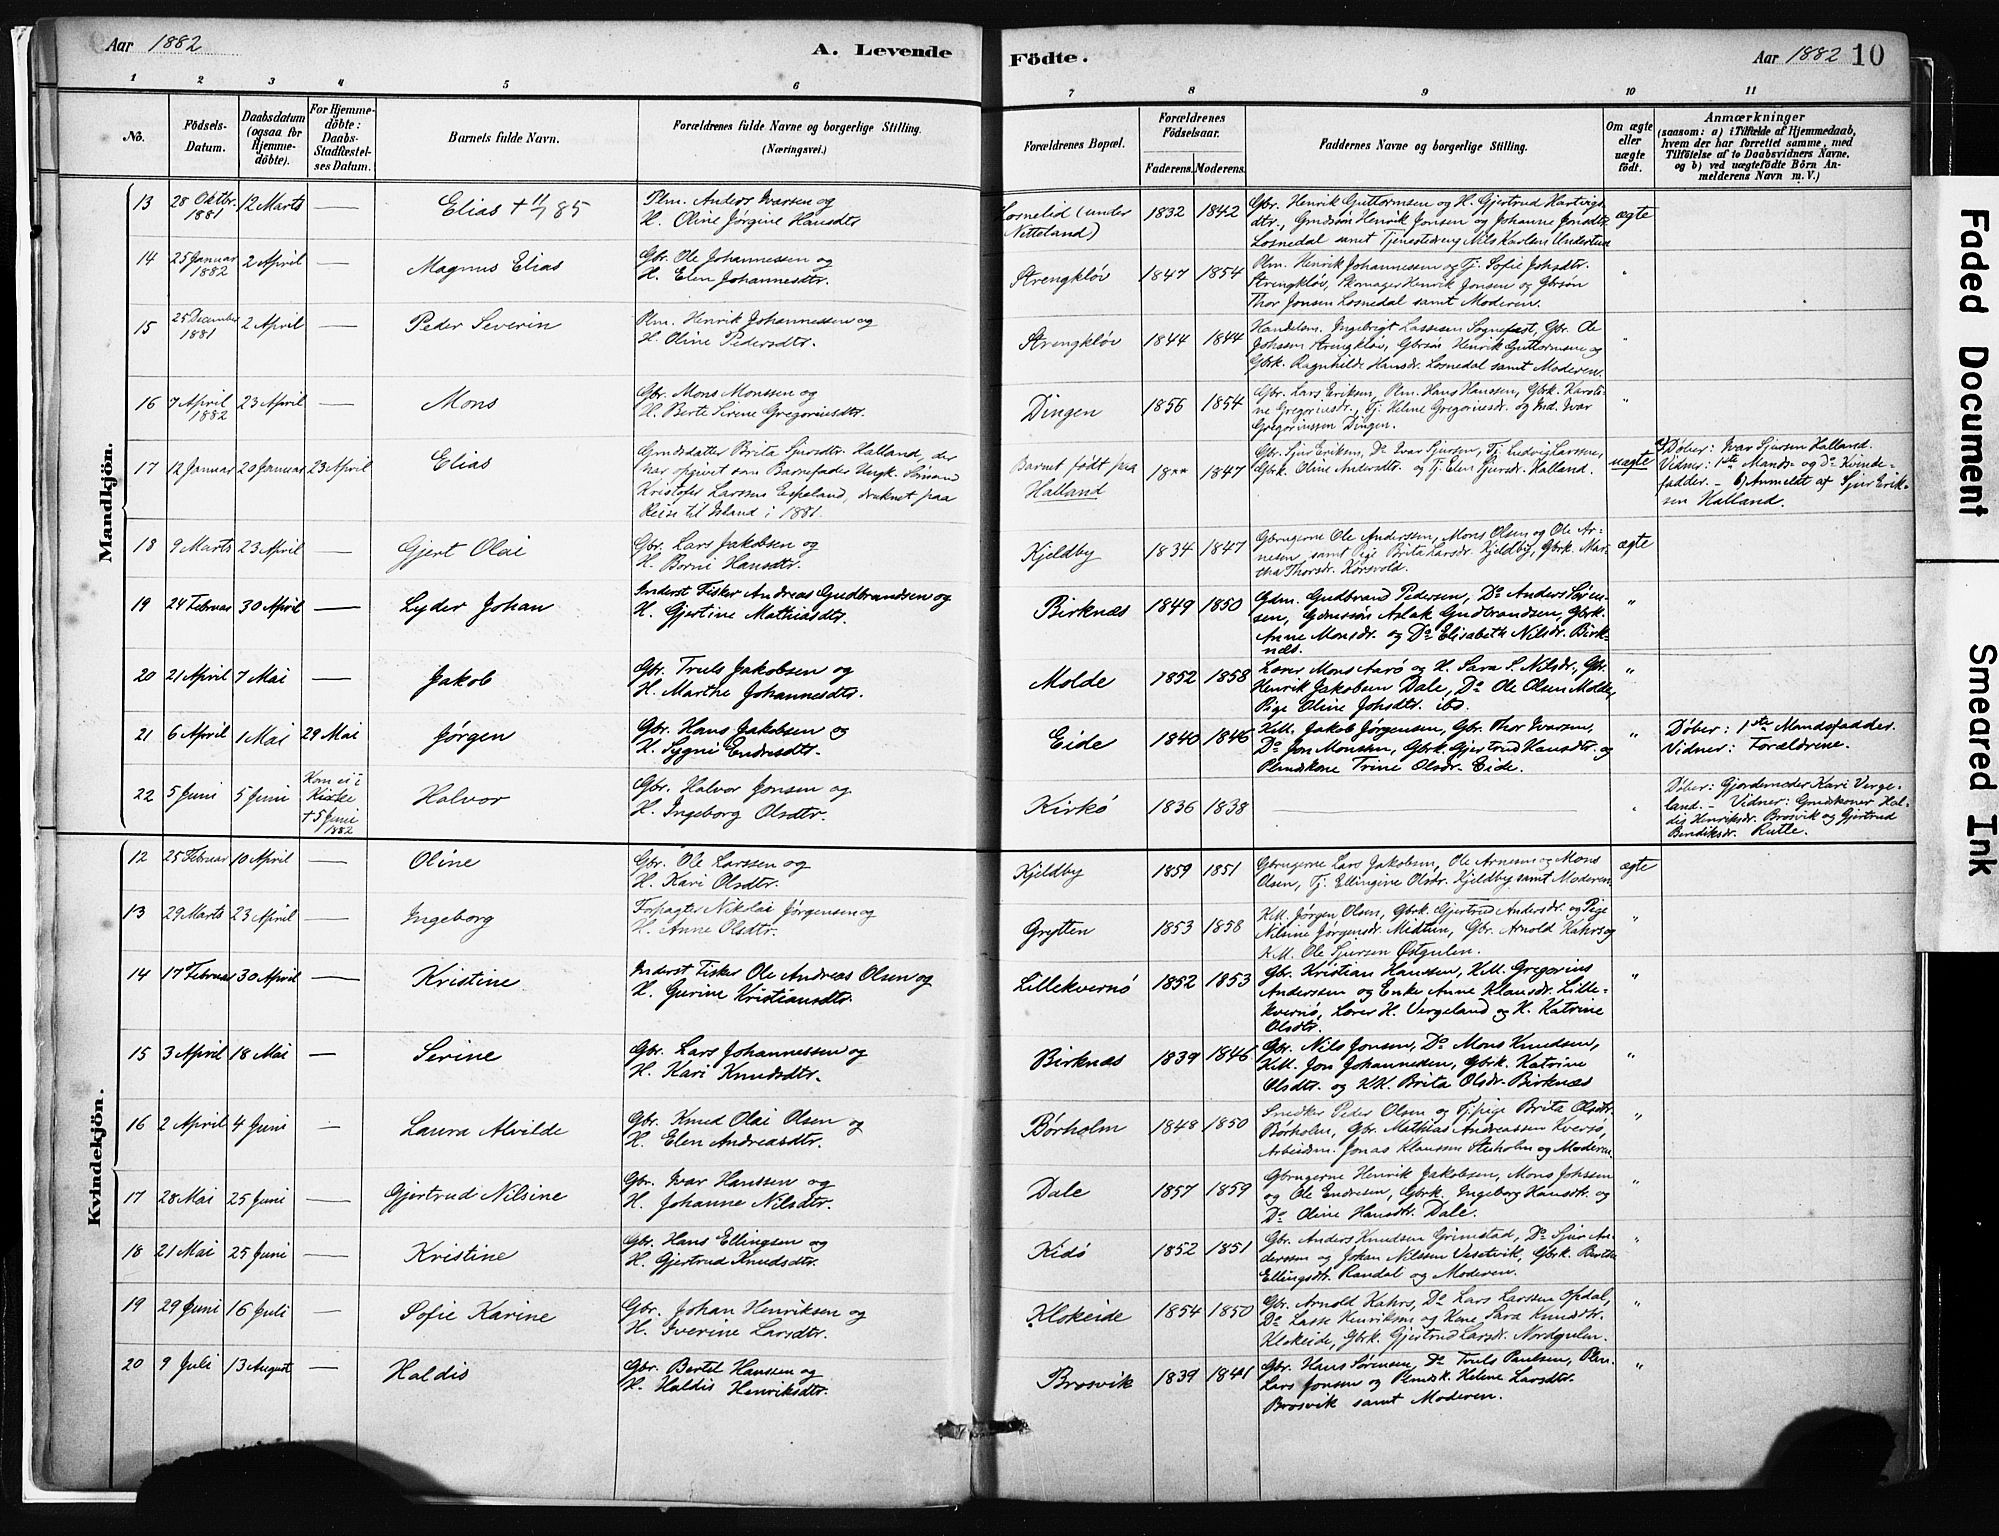 Aar 1882
A. Levende
Födte.
Aar 1882 10
1 2 3 4 5 6 7 8 9 10 11
No.
Födsels-
Datum.
Daabsdatum
(ogsaa for
Hjemme-
döbte).
For Hjemme-
döbte:
Daabs-
Stadfæstel-
ses Datum.
Barnets fulde Navn.
Forældrenes fulde Navne og borgerlige Stilling.
(Næringsvei.)
Forældrenes Bopæl.
Forældrenes
Födselsaar.
Faderens. Moderens.
Faddernes Navne og borgerlige Stilling.
Om ægte
eller
uægte
födt.
Anmærkninger
(saasom: a) i Tilfælde af Hjemmedaab,
hvem der har forrettet samme, med
Tilföielse af to Daabsvidners Navne,
og b) ved uægtefödte Börn An-
melderens Navn m. V.)
Mandkjön.
13 28 Oktbr. 1881 12 Marts — Elias + 11/7 85
Plm. Anders Ivarsen og
H. Oline Jørgine Hansdtr.
Losnelid (under
Netteland)
1832 1842
Gbr. Henrik Guttormsen og H. Gjertrud Hartvigs-
dtr., Gmdssøn Henrik Jonsen og Johanne Jonsdtr.
Losnedal samt Tjenestedreng Nils Karlsen Understad
ægte
14 25 Januar 1882 2 April — Magnus Elias
Gbr. Ole Johannessen og
H. Elen Johannesdtr.
Strengkløv 1847 1854
Plm. Henrik Johannessen og Tj. Sofie Johsdtr.
Strengkløv, Skomager Henrik Jonsen og Gbrsøn
Thor Jonsen Losnedal samt Moderen.
"
15 25 December 1881 2 April — Peder Severin
Plm. Henrik Johannessen og
H. Oline Pedersdtr.
Strengkløv 1844 1844
Handelsm. Ingebrigt Lassesen Sognefast, Gbr. Ole
Johssen Strengkløv, Gbrsøn Henrik Guttormsen og
Gbrk. Ragnhilde Hansdr. Losnedal samt Moderen.
"
16 7 April 1882 23 April — Mons
Gbr. Mons Monssen og
H. Berte Sirene Gregoriusdtr.
Dingen 1856 1854
Gbr. Lars Eriksen, Plm. Hans Hanssen, Gbrk. Karoli-
ne Gregoriusdr., Tj. Helene Gregoriusdr. og Ind. Ivar
Gregoriussen Dingen.
"
17 12 Januar 20 Januar 23 April Elias
Gmdsdatter Brita Sjursdtr. Halland, der
har opgivet som Barnefader Ungk. Sømand
Kristofer Larssen Espeland, druknet paa
Reise til Island i 1881.
Barnet født paa
Halland
18** 1847
Gbr. Sjur Eriksen, Do Ivar Sjursen, Tj. Ludvig Larssen,
Gbrk. Oline Andersdtr. og Tj. Elen Sjursdr. Halland.
uægte
a) Døber: Ivar Sjursen Halland.
Vidner: 1ste Mands- og Do Kvinde-
fadder. – b) Anmeldt af Sjur Erik-
sen Halland.
18 9 Marts 23 April — Gjert Olai
Gbr. Lars Jakobsen og
H. Borni Hansdtr.
Kjeldby 1834 1847
Gbrugerne Ole Anderssen, Mons Olsen og Ole Ar-
nesen, samt Pige Brita Larsdr. Kjeldby, Gbrk. Mar-
tha Thorsdr. Korsvold.
ægte
19 24 Februar 30 April — Lyder Johan
Inderst Fisker Andreas Gudbrandsen og
H. Gjertine Mathiasdtr.
Birknæs 1849 1850
Gdm. Gudbrand Pedersen, Do Anders Søren-
sen, Gdmssøn Aslak Gudbrandsen, Gbrk.
Anne Monsdr. og Do Elisabeth Nilsdr. Birk-
næs.
"
20 21 April 7 Mai — Jakob
Gbr. Truls Jakobsen og
H. Marthe Johannesdtr.
Molde 1852 1858
Lærer Mons Aarø og H. Sara S. Nilsdr., Gbr.
Henrik Jakobsen Dale, Do Ole Olsen Molde,
Pige Oline Johsdtr. ibd.
"
21 6 April 1 Mai 29 Mai Jørgen
Gbr. Hans Jakobsen og
H. Sygni Endresdtr.
Eide 1840 1846
KM. Jakob Jørgensen, Gbr. Thor Ivarsen,
Do Jon Monssen, Gbrk. Gjertrud Hansdtr. og
Plmdskone Trine Olsdr. Eide.
"
Døber: 1ste Mandsfadder.
Vidner: Forældrene.
22 5 Juni 5 Juni Kom ei i
Kirke
+ 5 Juni
1882
Halvor
Gbr. Halvor Jonsen og
H. Ingeborg Olsdtr.
Kirkø 1836 1838 —
"
Døber: Gjordemoder Kari Verge-
land. – Vidner: Gmdskoner Hal-
dis Henriksdr. Brosvik og Gjertrud
Bendiksdr. Rutle.
Kvindekjön.
12 25 Februar 10 April — Oline
Gbr. Ole Larssen og
H. Kari Olsdtr.
Kjeldby 1859 1851
Gbrugerne Lars Jakobsen, Ole Arnesen og Mons
Olsen, Tj. Ellingine Olsdr. Kjeldby samt Moderen.
ægte
13 29 Marts 23 April — Ingeborg
Forpagter Nikolai Jørgensen og
H. Anne Olsdtr.
Grytten 1853 1858
KM. Jørgen Olsen, Gbrk. Gjertrud Andersdr. og Pige
Nilsine Jørgensdr. Midtun, Gbr. Arnold Kahrs og
KM. Ole Sjursen Østgulen.
"
14 17 Februar 30 April — Kristine
Inderst Fisker Ole Andreas Olsen og
H. Gurine Kristiansdtr.
Lillekvernø 1852 1853
Gbr. Kristian Hanssen, KM. Gregorius
Anderssen og Enke Anne Klausdr. Lille-
kvernø, Lærer H. Vergeland og H. Katrine
Olsdtr.
"
15 3 April 18 Mai — Serine
Gbr. Lars Johannessen og
H. Kari Knudsdtr.
Birknæs 1839 1846
Gbr. Nils Jonsen, Do Mons Knudsen,
KM. Jon Johannessen, Gbrk. Katrine
Olsdtr. og KK. Brita Olsdr. Birknæs
"
16 2 April 4 Juni — Laura Alvilde
Gbr. Knud Olai Olsen og
H. Elen Andreasdtr.
Børholm 1848 1850
Snedker Peder Olsen og Tj.pige Brita Olsdtr.
Børholm, Gbr. Mathias Andreassen Kversø,
Arbeidsm. Jonas Klaussen Stesholm og Moderen.
"
17 28 Mai 25 Juni — Gjertrud Nilsine
Gbr. Ivar Hanssen og
H. Johanne Nilsdtr.
Dale 1857 1859
Gbrugerne Henrik Jakobsen, Mons Johssen
og Ole Endresen, Gbrk. Ingeborg Hansdtr. og
Do Oline Hansdtr. Dale.
"
18 21 Mai 25 Juni — Kristine
Gbr. Hans Ellingsen og
H. Gjertrud Knudsdtr.
Kidø 1852 1851
Gbr. Anders Knudsen Grimstad, Do Sjur An-
derssen og Johan Nilssen Vesetvik, Gbrk. Berthe
Ellingsdtr. Randal og Moderen.
"
19 29 Juni 16 Juli — Sofie Karine
Gbr. Johan Henriksen og
H. Iverine Larsdtr.
Klokeide 1854 1850
Gbr. Arnold Kahrs, Do Lars Larssen Opdal,
Do Lasse Henriksen og Kone Sara Knudsdtr.
Klokeide, Gbrk. Gjertrud Larsdr. Nordgulen.
"
20 9 Juli 13 August — Haldis
Gbr. Bertel Hanssen og
H. Haldis Henriksdtr.
Brosvik 1839 1841
Gbr. Hans Sørensen, Do Truls Paulsen, Plm.
Lars Jonsen og Plmdsk. Helene Larsdtr.
Brosvik samt Moderen.
"
Faded Document
Smeared Ink